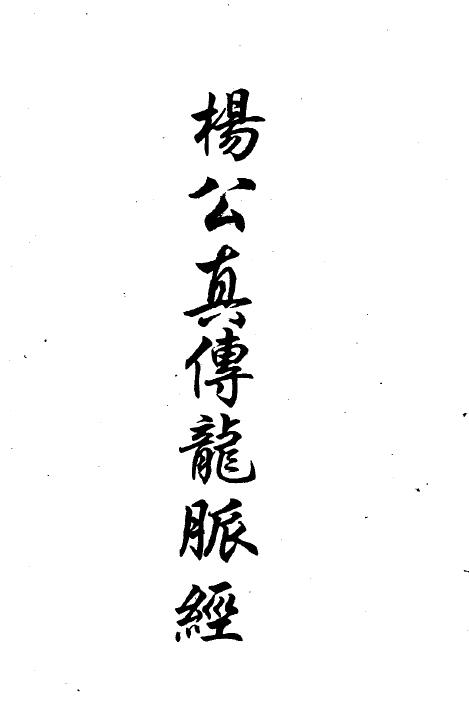 楊公真傳龍脈經